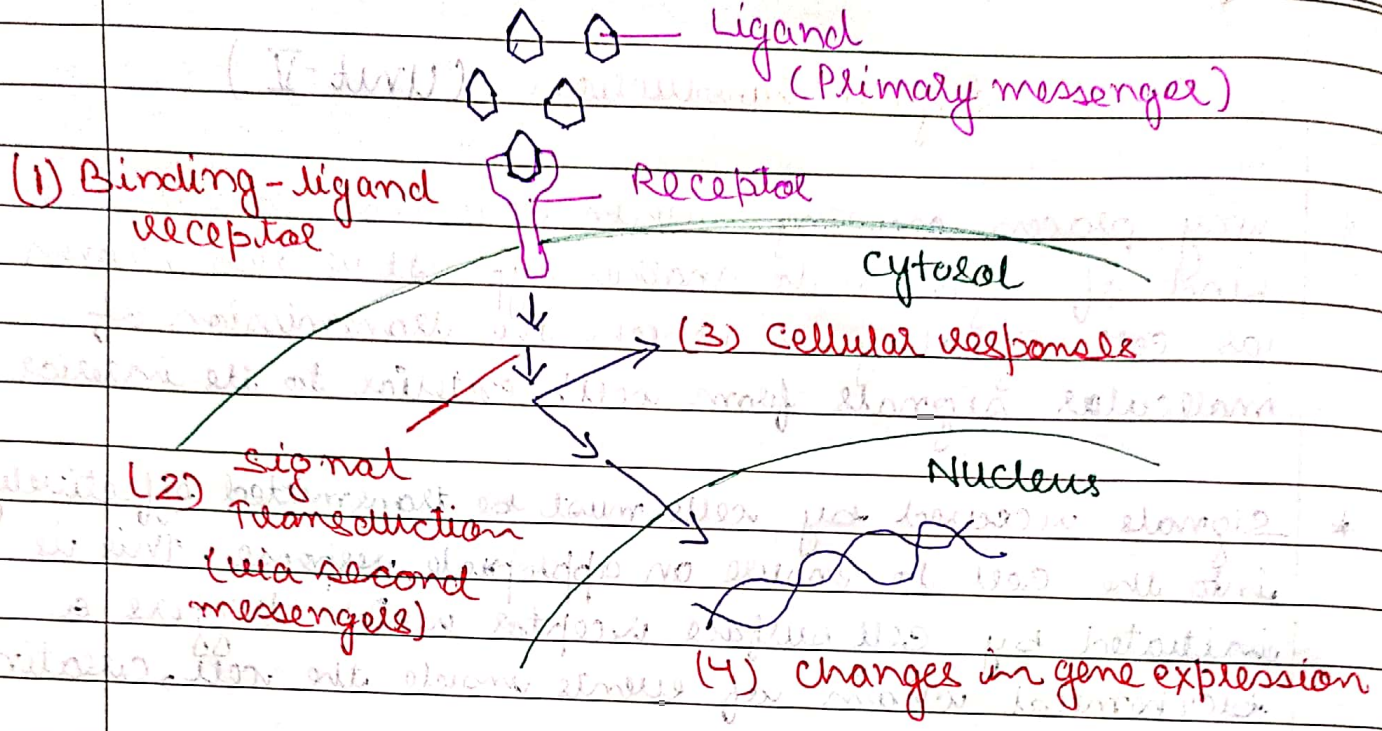 Ligand
(Primary messenger)
(1) Binding-ligand
receptor
Receptor
Cytosol
(3) Cellular responses
(2) Signal
Transduction
(via second
messengers)
Nucleus
(4) Changes in gene expression